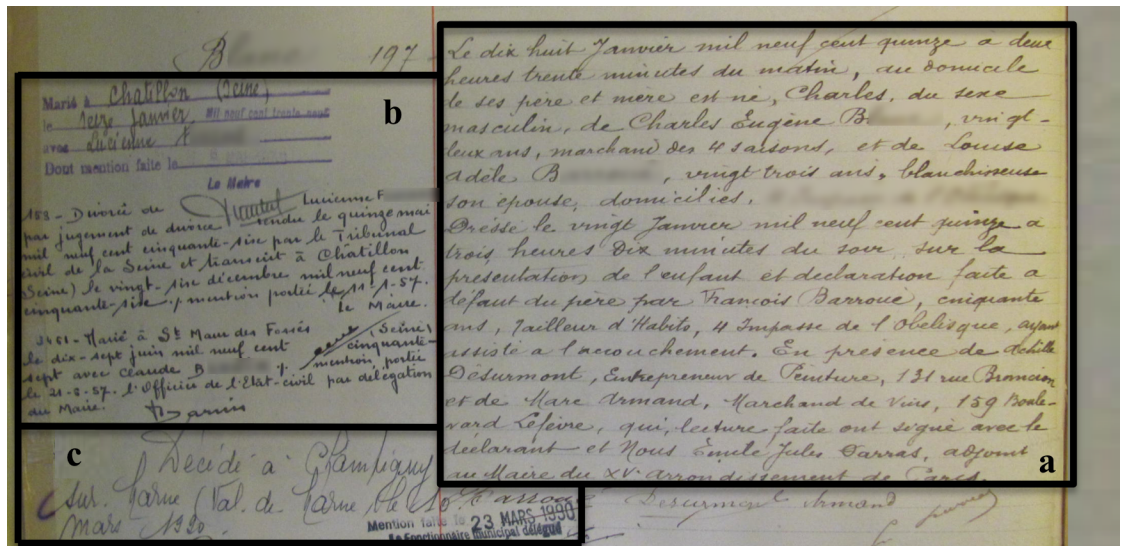 B
197
Marié à Chatillon (Seine)
le seize Janvier, mil neuf cent trente sept
avec Lucienne F
Dont mention faite le
Le Maire
b
153 - Divorcé de Lucienne F
par jugement de divorce rendu le quinze mai
mil neuf cent cinquante-six par le Tribunal
civil de la Seine et transcrit à Chatillon
(Seine) le vingt-six décembre mil neuf cent
cinquante-six ; mention portée le 11-1-57.
le Maire.
Marié à St Maur des Fossés (Seine)
le dix-sept juin mil neuf cent cinquante-
sept avec Claude B mention portée
le 21-8-57. l'Officier de l'Etat-civil par délégation
du Maire.
c
Décédé à Champigny
sur Marne (Val de Marne) le 10
mars 1990
Mention faite le 23 MARS 1990
Le Fonctionnaire municipal délégué
Le dix huit Janvier mil neuf cent quinze à deux
heures trente minutes du matin, au domicile
de ses père et mère est né, Charles, du sexe
masculin, de Charles Eugène B , vingt-
deux ans, marchand des 4 saisons, et de Louise
Adèle B , vingt trois ans, blanchisseuse
son épouse, domiciliés.
Dressé le vingt Janvier mil neuf cent quinze à
trois heures dix minutes du soir, sur la
présentation de l'enfant et déclaration faite à
défaut du père par François Barroué, cinquante
ans, Tailleur d'Habits, 4 Impasse de l'Obélisque, ayant
assisté à l'accouchement. En présence de Achille
Désurmont, Entrepreneur de Peinture, 131 rue Brancion
et de Marc Armand, Marchand de Vins, 159 Boule-
vard Lefèvre, qui, lecture faite ont signé avec le
déclarant et Nous Emile Jules Darras, adjoint
au Maire du XVe arrondissement de Paris.
a
Désurmont Armand